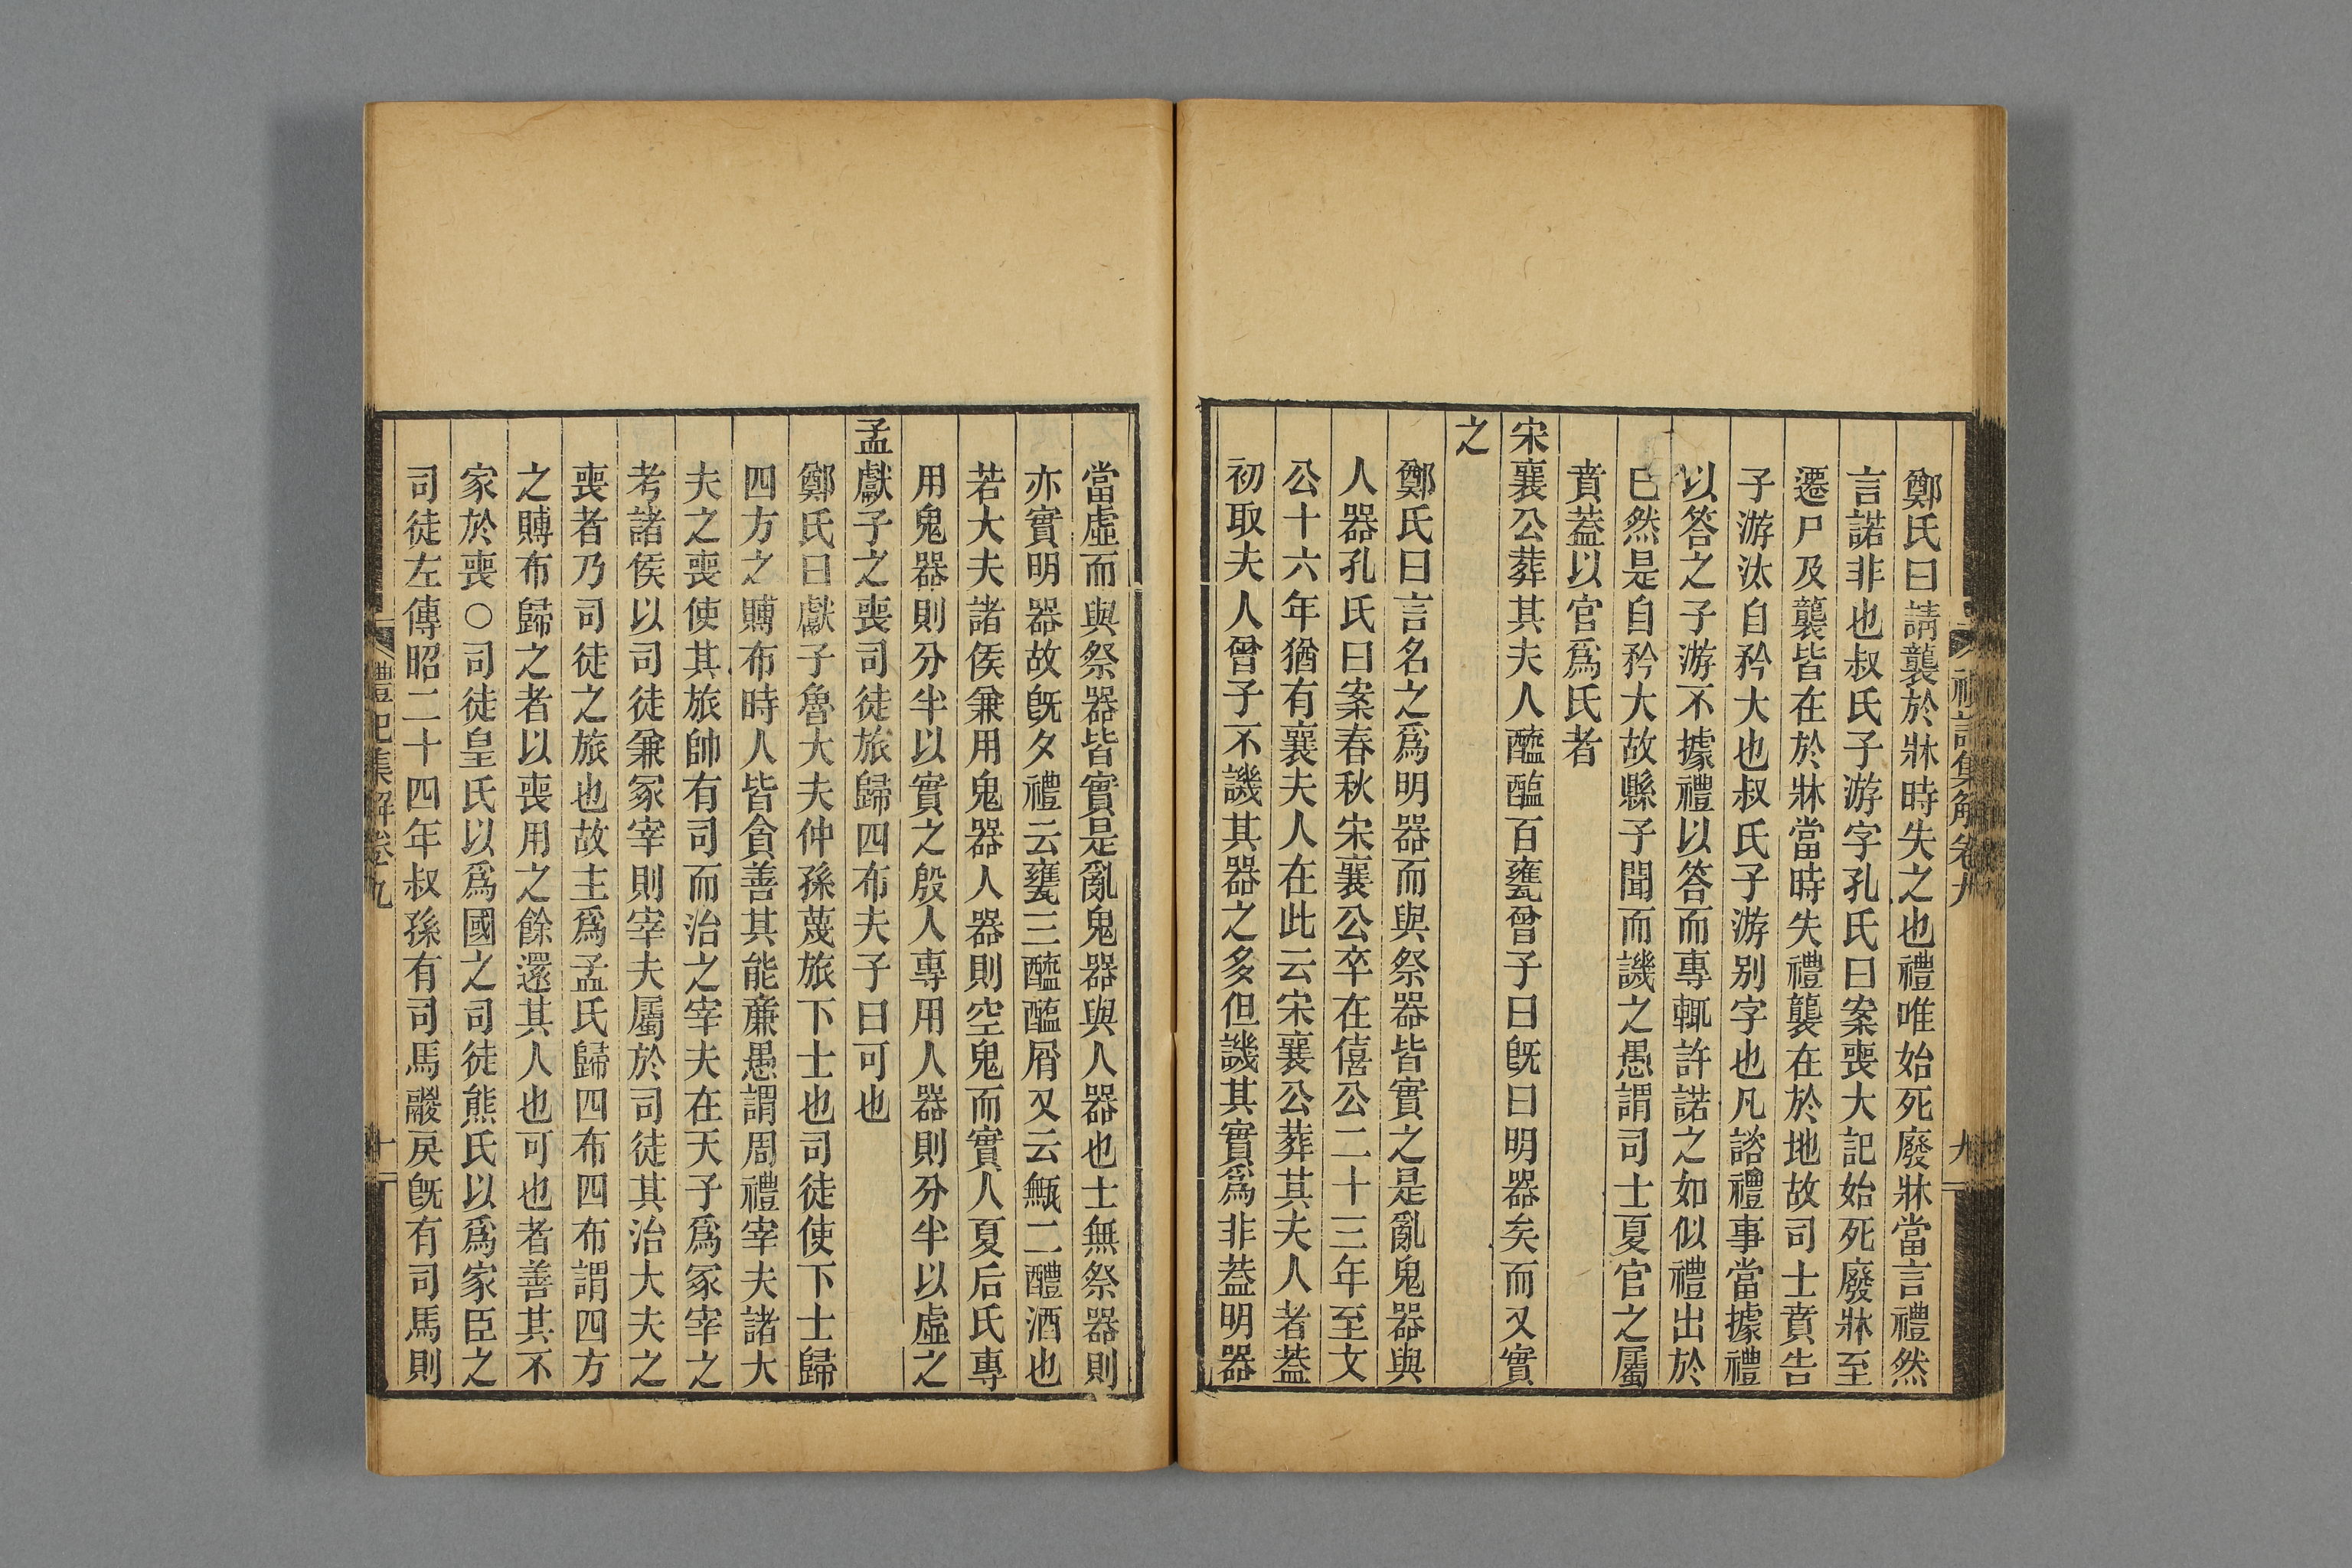 鄭氏曰請襲於牀時失之也禮唯始死廢牀當言禮然
言諾非也叔氏子游字孔氏曰案喪大記始死廢牀至
遷尸及襲皆在於牀當時失禮襲在於地故司士賁告
子游汰自矜大也叔氏子游别字也凡諮禮事當據禮
以答之子游不據禮以答而專輒許諾之如似禮出於
已然是自矜大故縣子聞而譏之愚謂司士夏官之屬
賁蓋以官爲氏者
宋襄公葬其夫人醯醢百甕曾子曰旣曰明器矣而又實
之
鄭氏曰言名之爲明器而與祭器皆實之是亂鬼器與
人器孔氏曰案春秋宋襄公卒在僖公二十三年至文
公十六年猶有襄夫人在此云宋襄公葬其夫人者蓋
初取夫人曾子不譏其器之多但譏其實爲非蓋明器
禮記集解卷九
九
當虛而與祭器皆實是亂鬼器與人器也士無祭器則
亦實明器故旣夕禮云甕三醯醢屑又云甒二醴酒也
若大夫諸侯兼用鬼器人器則空鬼而實人夏后氏專
用鬼器則分半以實之殷人專用人器則分半以虛之
孟獻子之喪司徒旅歸四布夫子曰可也
鄭氏曰獻子魯大夫仲孫蔑旅下士也司徒使下士歸
四方之賻布時人皆貪善其能亷愚謂周禮宰夫諸大
夫之喪使其旅帥有司而治之宰夫在天子爲冢宰之
考諸侯以司徒兼冢宰則宰夫屬於司徒其治大夫之
喪者乃司徒之旅也故主爲孟氏歸四布四布謂四方
之賻布歸之者以喪用之餘還其人也可也者善其不
家於喪○司徒皇氏以爲國之司徒熊氏以爲家臣之
司徒左傳昭二十四年叔孫有司馬鬷戾旣有司馬則
禮記集解卷九
十